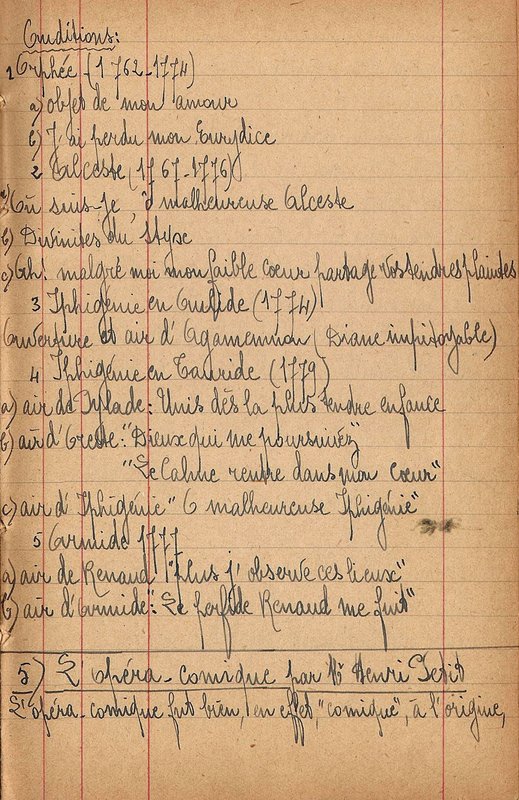 Auditions:
1 Orphée (1762-1774)
a) objet de mon amour
b) J'ai perdu mon Eurydice
2 Alceste (1767-1776)
a) Où suis-je, ô malheureuse Alceste
b) Divinités du Styx
c) Ah! malgré moi mon faible coeur partage vos tendres plaintes
3 Iphigénie en Aulide (1774)
Ouverture et air d'Agamemnon (Diane impitoyable)
4 Iphigénie en Tauride (1779)
a) air de Pylade: Unis dès la plus tendre enfance
b) air d'Oreste: "Dieux qui me poursuivez"
"Le Calme rentre dans mon coeur"
c) air d'Iphigénie "O malheureuse Iphigénie"
5 Armide 1777
a) air de Renaud "Plus j'observe ces lieux"
b) air d'Armide: "Le perfide Renaud me fuit"
5) L'opéra-comique par Mr Henri Petit
L'opéra-comique fut bien, en effet, "comique", à l'origine,